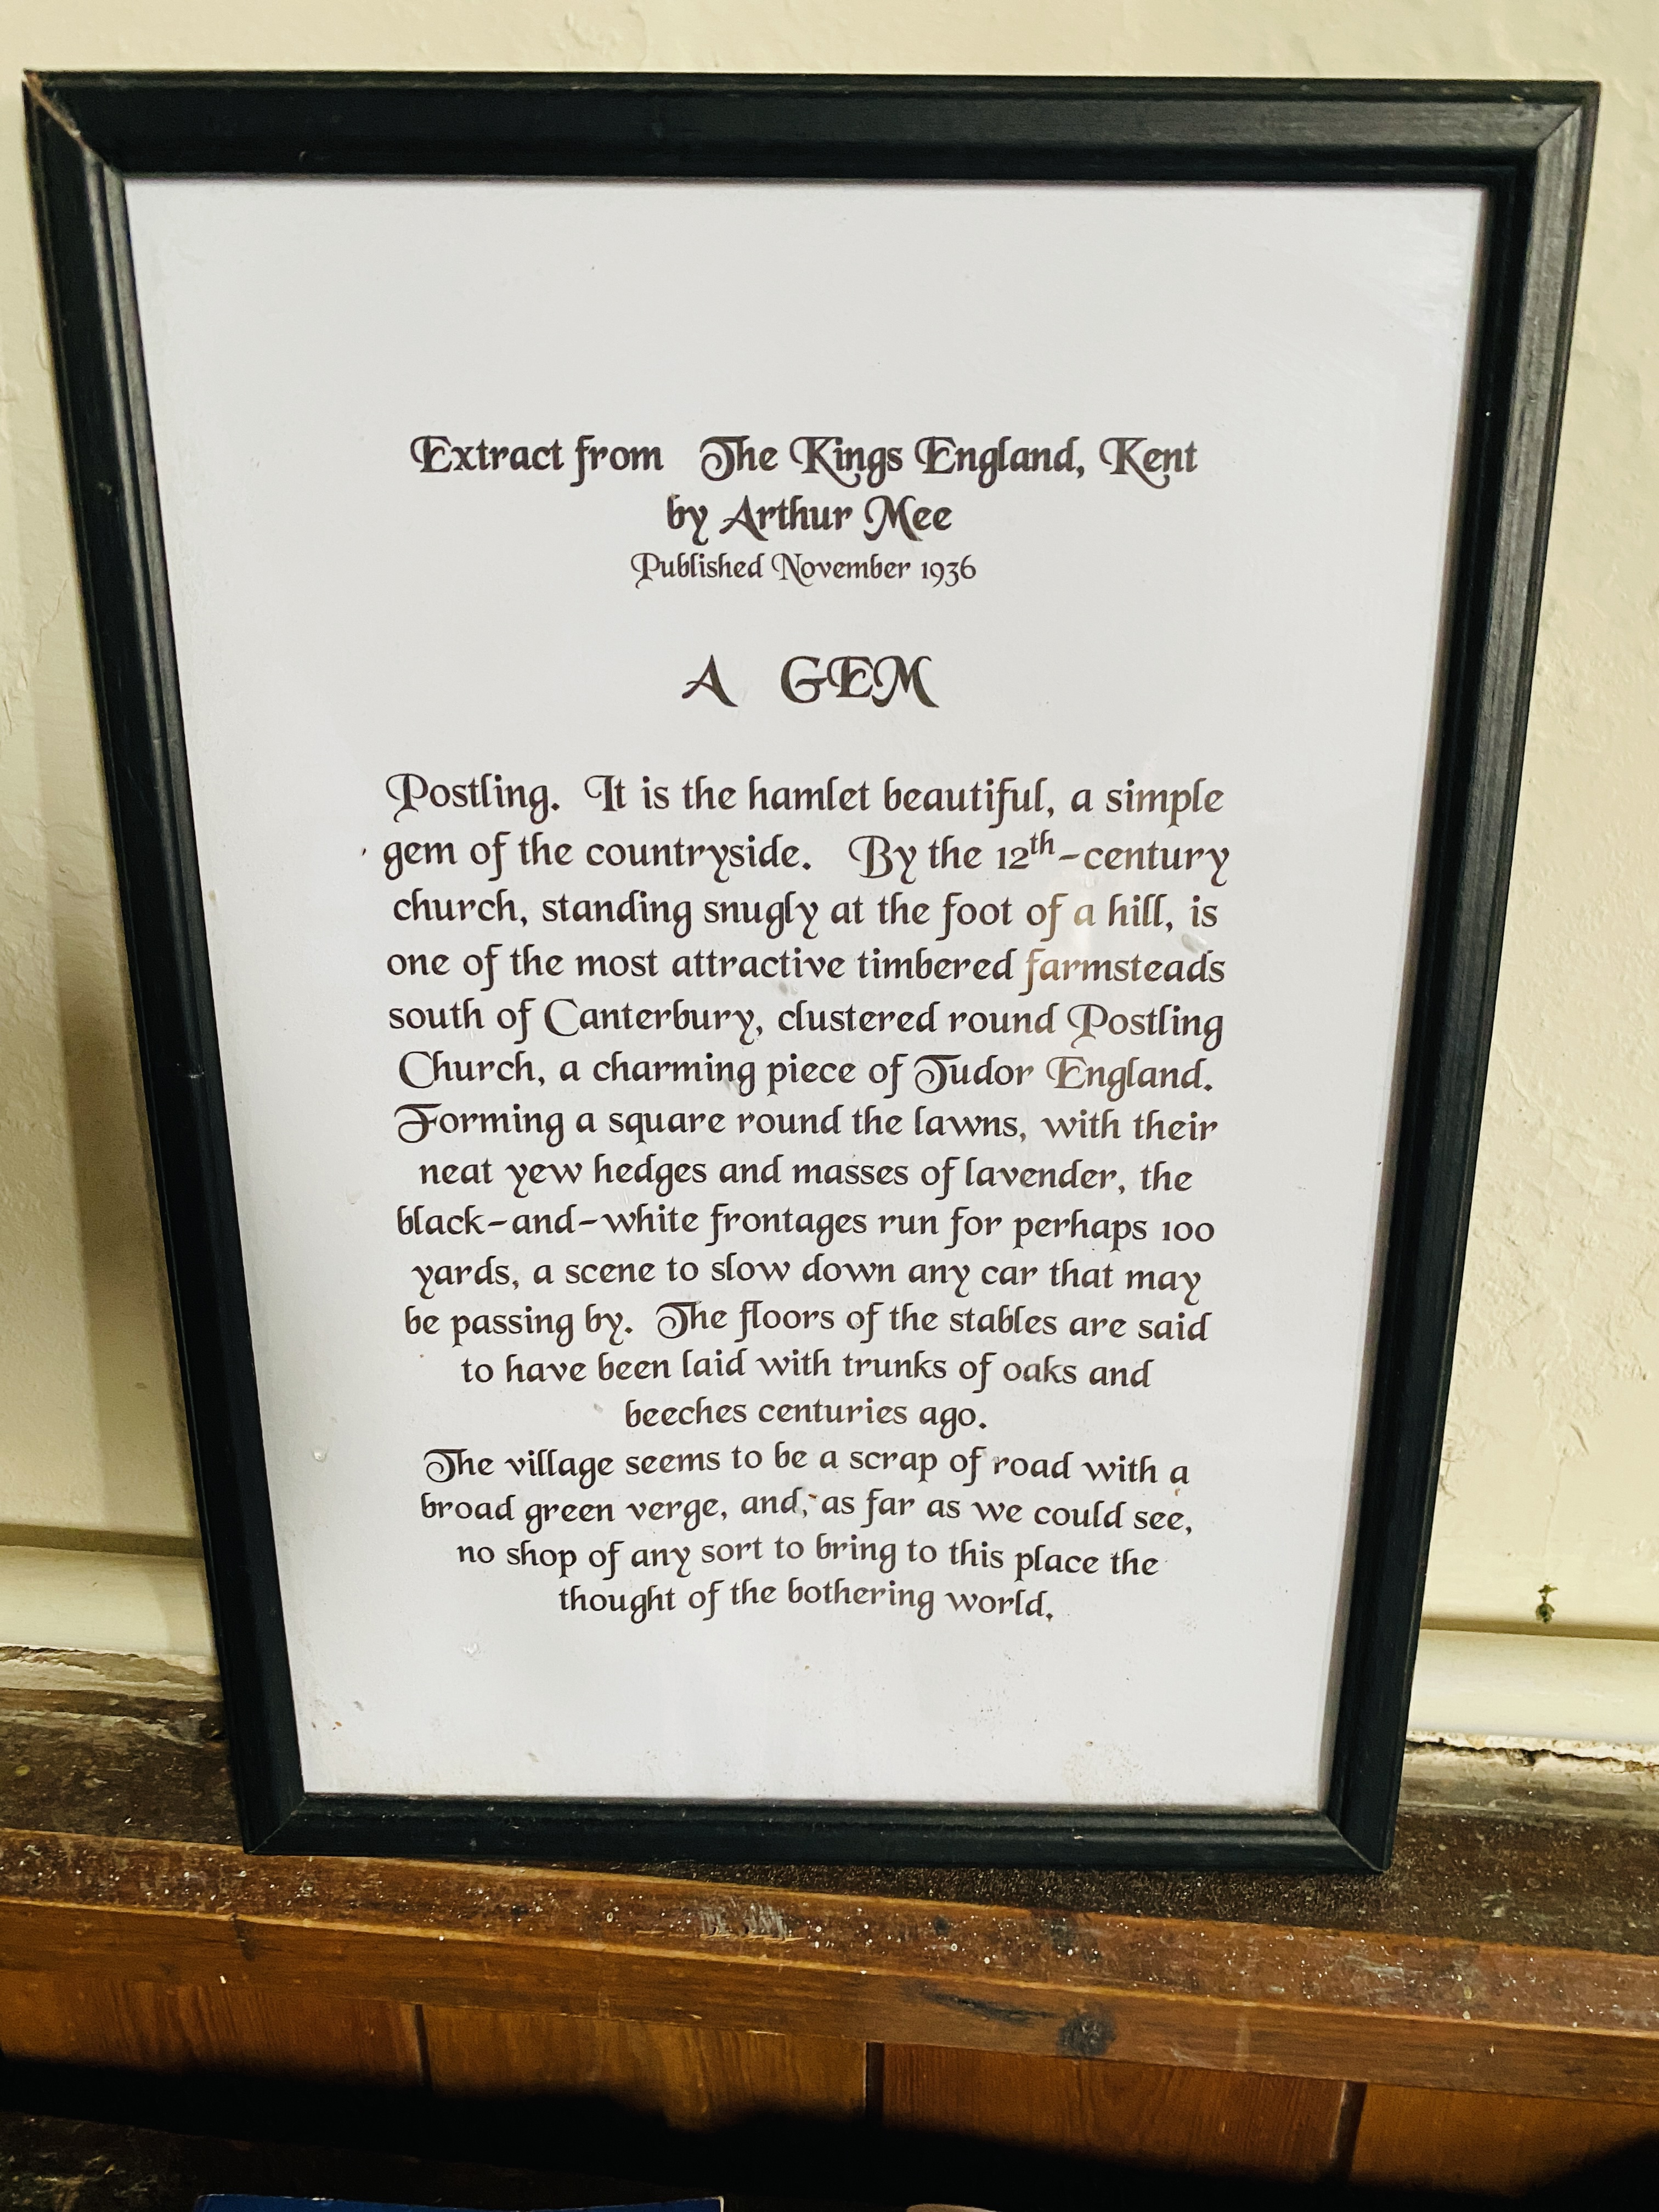 Extract from The Kings England, Kent
by Arthur Mee
Published November 1936
A GEM
Postling. It is the hamlet beautiful, a simple
gem of the countryside. By the 12th-century
church, standing snugly at the foot of a hill, is
one of the most attractive timbered farmsteads
south of Canterbury, clustered round Postling
Church, a charming piece of Tudor England.
Forming a square round the lawns, with their
neat yew hedges and masses of lavender, the
black-and-white frontages run for perhaps 100
yards, a scene to slow down any car that may
be passing by. The floors of the stables are said
to have been laid with trunks of oaks and
beeches centuries ago.
The village seems to be a scrap of road with a
broad green verge, and, as far as we could see,
no shop of any sort to bring to this place the
thought of the bothering world.